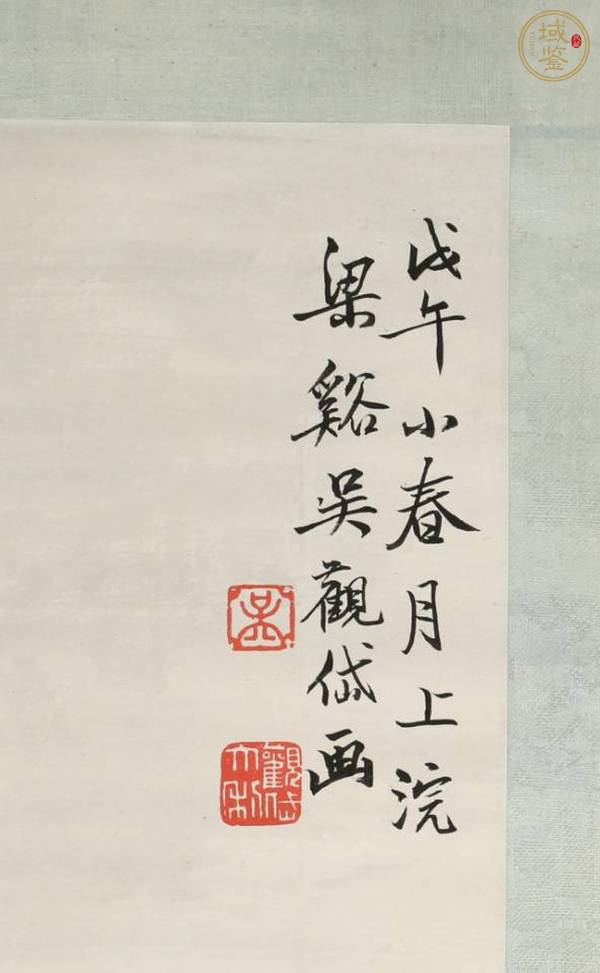 戊午小春月上浣
梁谿吴觀岱画
吴
觀岱
大利
域鉴